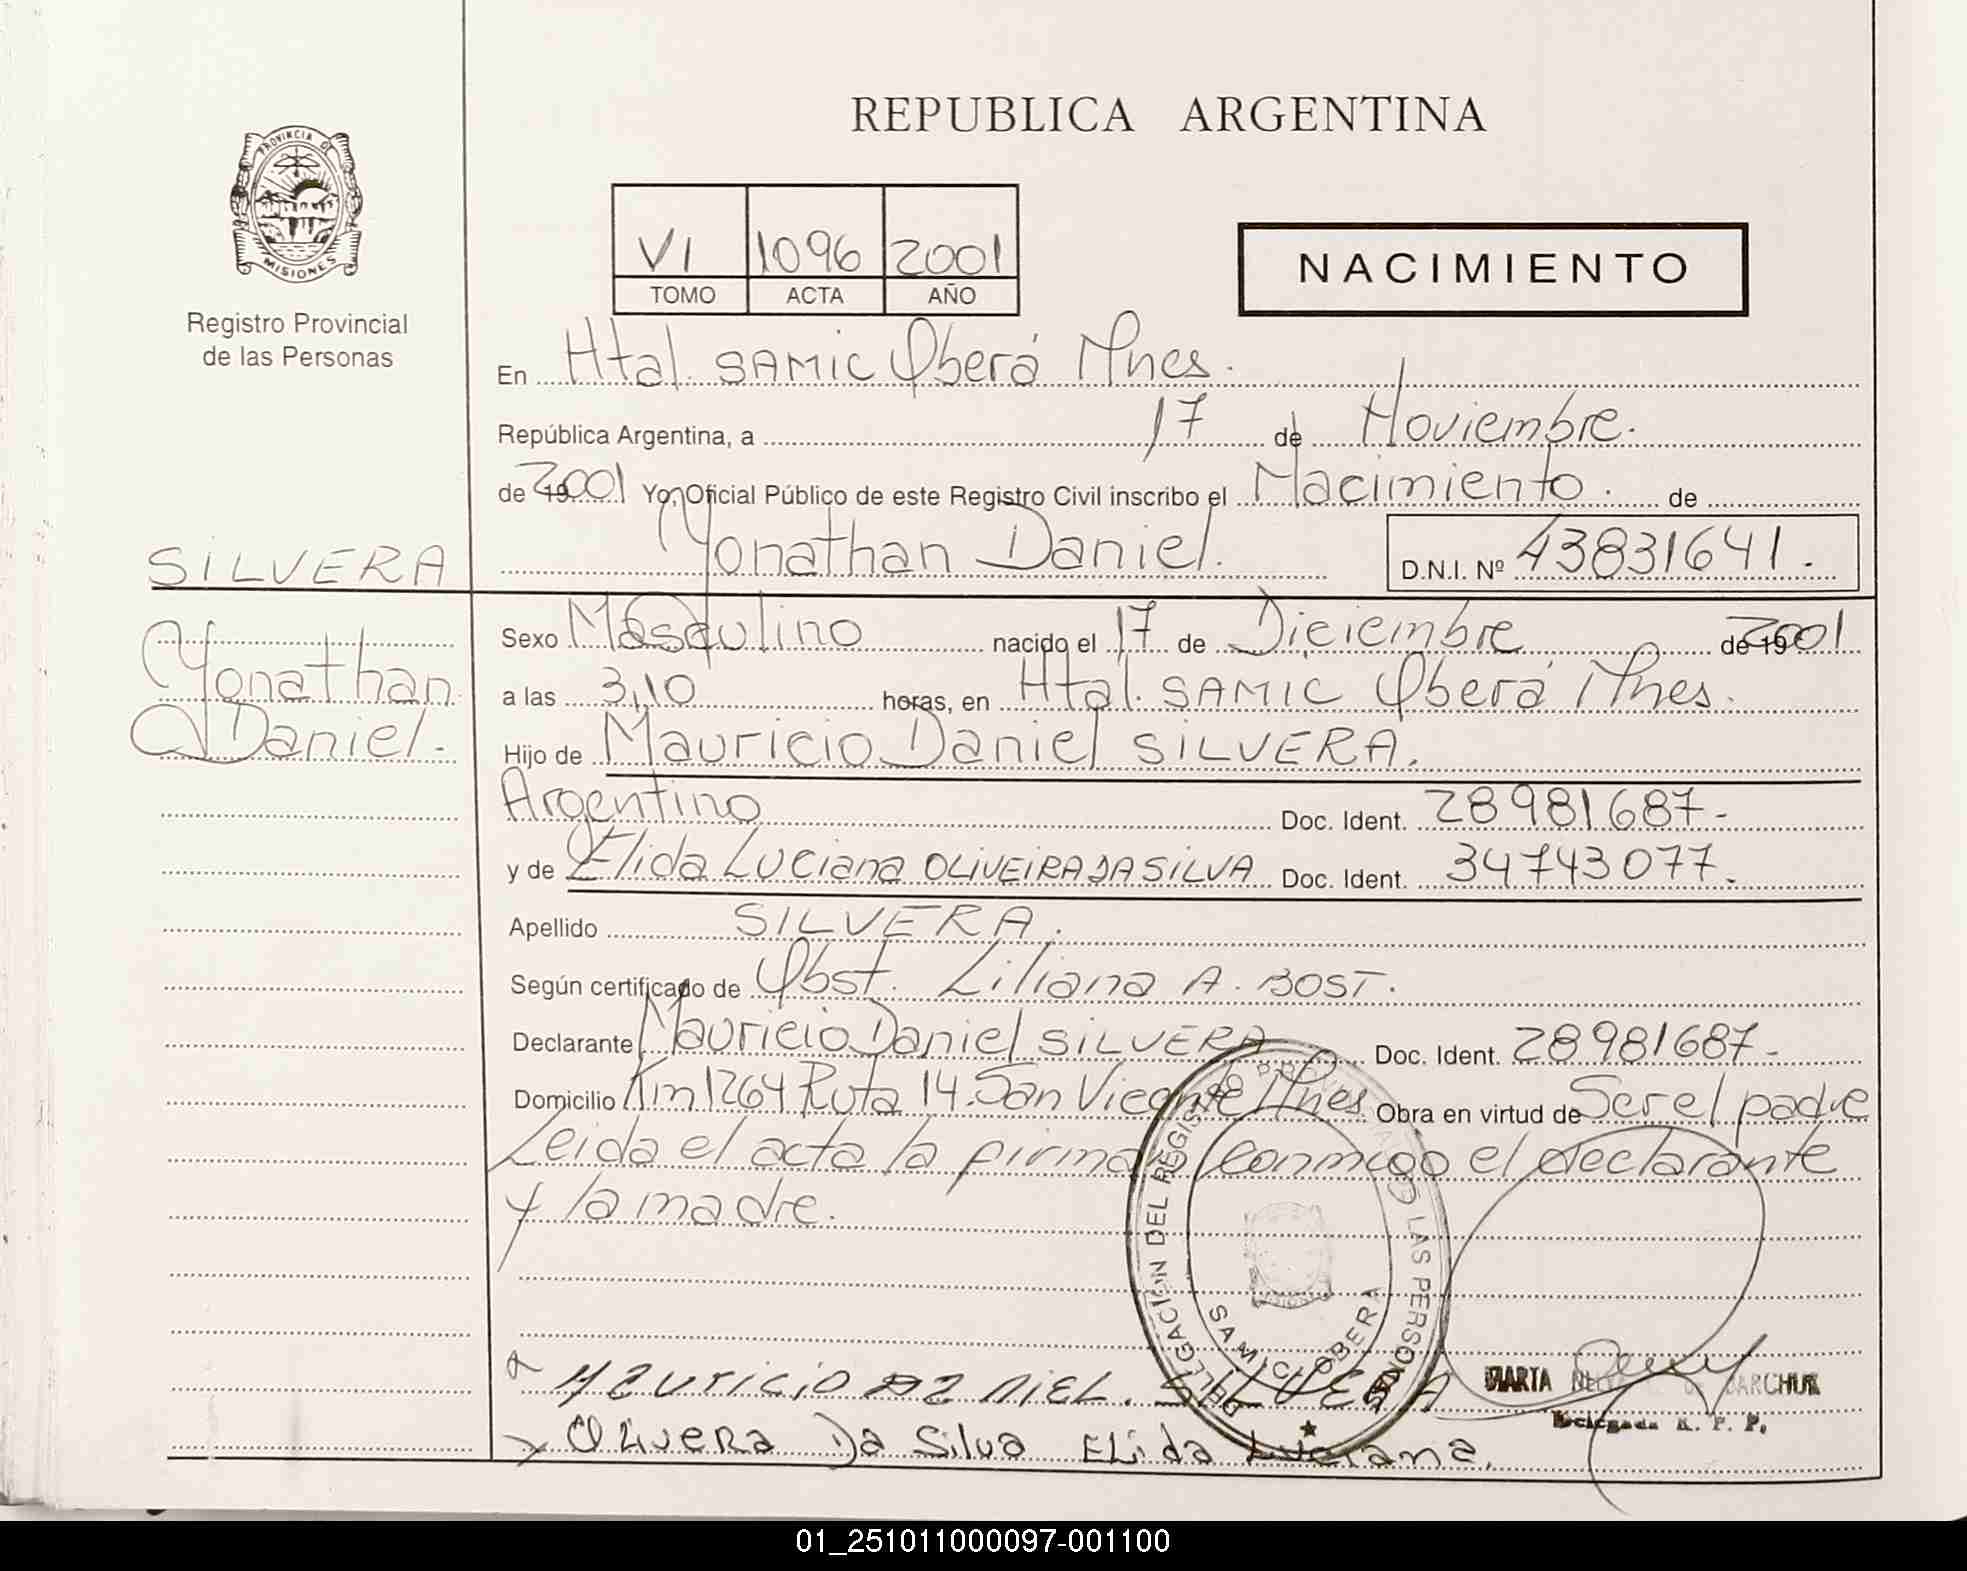 REPUBLICA ARGENTINA
PROVINCIA DE
MISIONES
Registro Provincial
de las Personas
VI 1096 2001
TOMO ACTA AÑO
NACIMIENTO
En Htal. SAMIC Oberá Mnes.
República Argentina, a 17 de Noviembre.
de 2001 Yo, Oficial Público de este Registro Civil inscribo el Nacimiento. de
Yonathan Daniel. D.N.I. Nº 43831641.
SILVERA
Yonathan
Daniel.
Sexo Masculino nacido el 17 de Diciembre de 19 2001
a las 3,10 horas, en Htal. SAMIC Oberá Mnes.
Hijo de Mauricio Daniel SILVERA.
Argentino Doc. Ident. 28981687-
y de Elida Luciana OLIVEIRA DA SILVA Doc. Ident. 34743077.
Apellido SILVERA.
Según certificado de Obst. Liliana A. BOST.
Declarante Mauricio Daniel SILVERA Doc. Ident. 28981687-
Domicilio Km 1264 Ruta 14. San Vicente Mnes Obra en virtud de Ser el padre
Leida el acta la firman conmigo el declarante
y la madre.
DELEGACION DEL REGISTRO PROVINCIAL DE LAS PERSONAS
SAMIC OBERA
MAURICIO DANIEL. SILVERA
MARTA
Delegada R. P. P.
Olivera Da Silva ELida Luciana.
01_251011000097-001100